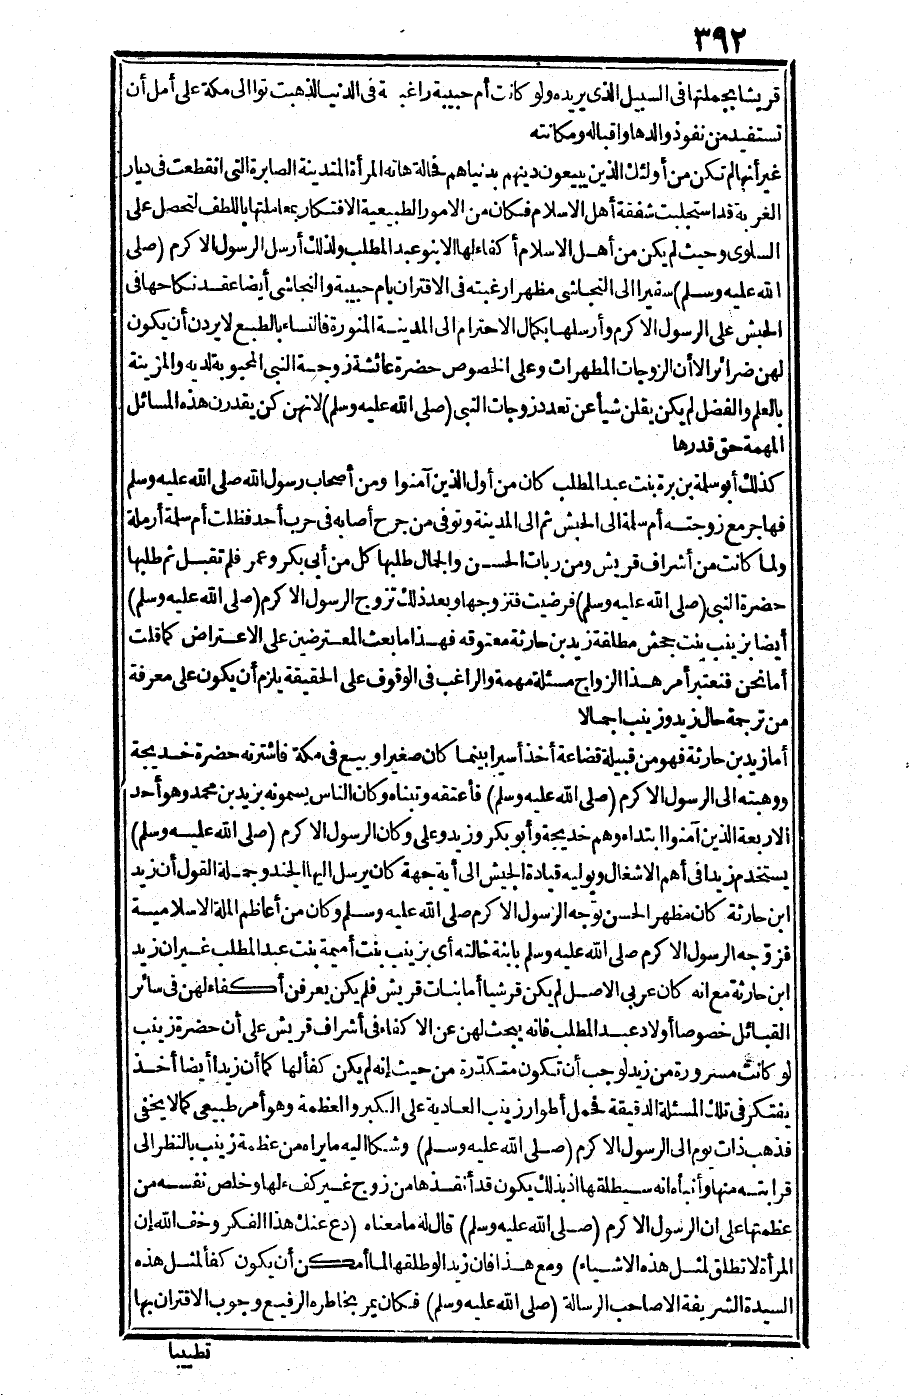 ٣٩٢
قريشا بجملتها فى السبيل الذى يريده ولو كانت أم حبيبة راغبة فى الدنيا لذهبت توا الى مكة على أمل أن
تستفيد من نفوذ والدها واقباله ومكانته
غير أنها لم تكن من أولئك الذين يبيعون دينهم بدنياهم فحالة هاته المرأة المتدينة الصابرة التى انقطعت فى ديار
الغربة قد استجلبت شفقة أهل الاسلام فكان من الامور الطبيعية الافتكار بمعاملتها باللطف لتحصل على
السلوى وحيث لم يكن من أهل الاسلام أكفاء لها الا بنو عبد المطلب ولذلك أرسل الرسول الاكرم (صلى
الله عليه وسلم) سفيرا الى النجاشى مظهرا رغبته فى الاقتران بام حبيبة والنجاشى أيضا عقد نكاحها فى
الحبش على الرسول الاكرم وأرسلها بكمال الاحترام الى المدينة المنورة فالنساء بالطبع لا يردن أن يكون
لهن ضرائر الا أن الزوجات المطهرات وعلى الخصوص حضرة عائشة زوجة النبى المحبوبة لديه والمزينة
بالعلم والفضل لم يكن يقلن شيأ عن تعدد زوجات النبى (صلى الله عليه وسلم) لانهن كن يقدرن هذه المسائل
المهمة حق قدرها
كذلك أبو سلمة بن برة بنت عبد المطلب كان من أول الذين آمنوا ومن أصحاب رسول الله صلى الله عليه وسلم
فهاجر مع زوجته أم سلمة الى الحبش ثم الى المدينة وتوفى من جرح أصابه فى حرب أحد فظلت أم سلمة أرملة
ولما كانت من أشراف قريش ومن ربات الحسن والجمال طلبها كل من أبى بكر وعمر فلم تقبل ثم طلبها
حضرة النبى (صلى الله عليه وسلم) فرضيت فتزوجها وبعد ذلك تزوج الرسول الاكرم (صلى الله عليه وسلم)
أيضا بزينب بنت جحش مطلقة زيد بن حارثة معتوقه فهذا ما بعث المعترضين على الاعتراض كما قلت
أما نحن فنعتبر أمر هذا الزواج مسئلة مهمة والراغب فى الوقوف على الحقيقة يلزم أن يكون على معرفة
من ترجمة حال زيد وزينب اجمالا
أما زيد بن حارثة فهو من قبيلة قضاعة أخذ أسيرا بينما كان صغيرا وبيع فى مكة فاشترته حضرة خديجة
ووهبته الى الرسول الاكرم (صلى الله عليه وسلم) فأعتقه وتبناه وكان الناس يسمونه بزيد بن محمد وهو أحد
الاربعة الذين آمنوا ابتداء وهم خديجة وأبو بكر وزيد وعلى وكان الرسول الاكرم (صلى الله عليه وسلم)
يستخدم زيدا فى أهم الاشغال ويوليه قيادة الجيش الى أية جهة كان يرسل اليها الجند وجملة القول أن زيد
ابن حارثة كان مظهر الحسن توجه الرسول الاكرم صلى الله عليه وسلم وكان من أعاظم الملة الاسلامية
فزوجه الرسول الاكرم صلى الله عليه وسلم بابنة خالته أى بزينب بنت أميمة بنت عبد المطلب غير ان زيد
ابن حارثة مع انه كان عربى الاصل لم يكن قرشيا أما بنات قريش فلم يكن يعرفن أكفاء لهن فى سائر
القبائل خصوصا أولاد عبد المطلب فانه يبحث لهن عن الاكفاء فى أشراف قريش على أن حضرة زينب
لو كانت مسرورة من زيد لوجب أن تكون متكدرة من حيث إنه لم يكن كفأ لها كما أن زيدا أيضا أخذ
يفتكر فى تلك المسئلة الدقيقة فحمل أطوار زينب العادية على الكبر والعظمة وهو أمر طبيعى كما لا يخفى
فذهب ذات يوم الى الرسول الاكرم (صلى الله عليه وسلم) وشكا اليه ما يراه من عظمة زينب بالنظر الى
قرابته منها وأنبأه انه سيطلقها اذ بذلك يكون قد أنقذها من زوج غير كفء لها وخلص نفسه من
عظمتها على ان الرسول الاكرم (صلى الله عليه وسلم) قال له ما معناه (دع عنك هذا الفكر وخف الله إن
المرأة لا تطلق لمثل هذه الاشياء) ومع هذا فان زيد لو طلقها لما أمكن أن يكون كفأ لمثل هذه
السيدة الشريفة الا صاحب الرسالة (صلى الله عليه وسلم) فكان يمر بخاطره الرفيع وجوب الاقتران بها
تطييبا